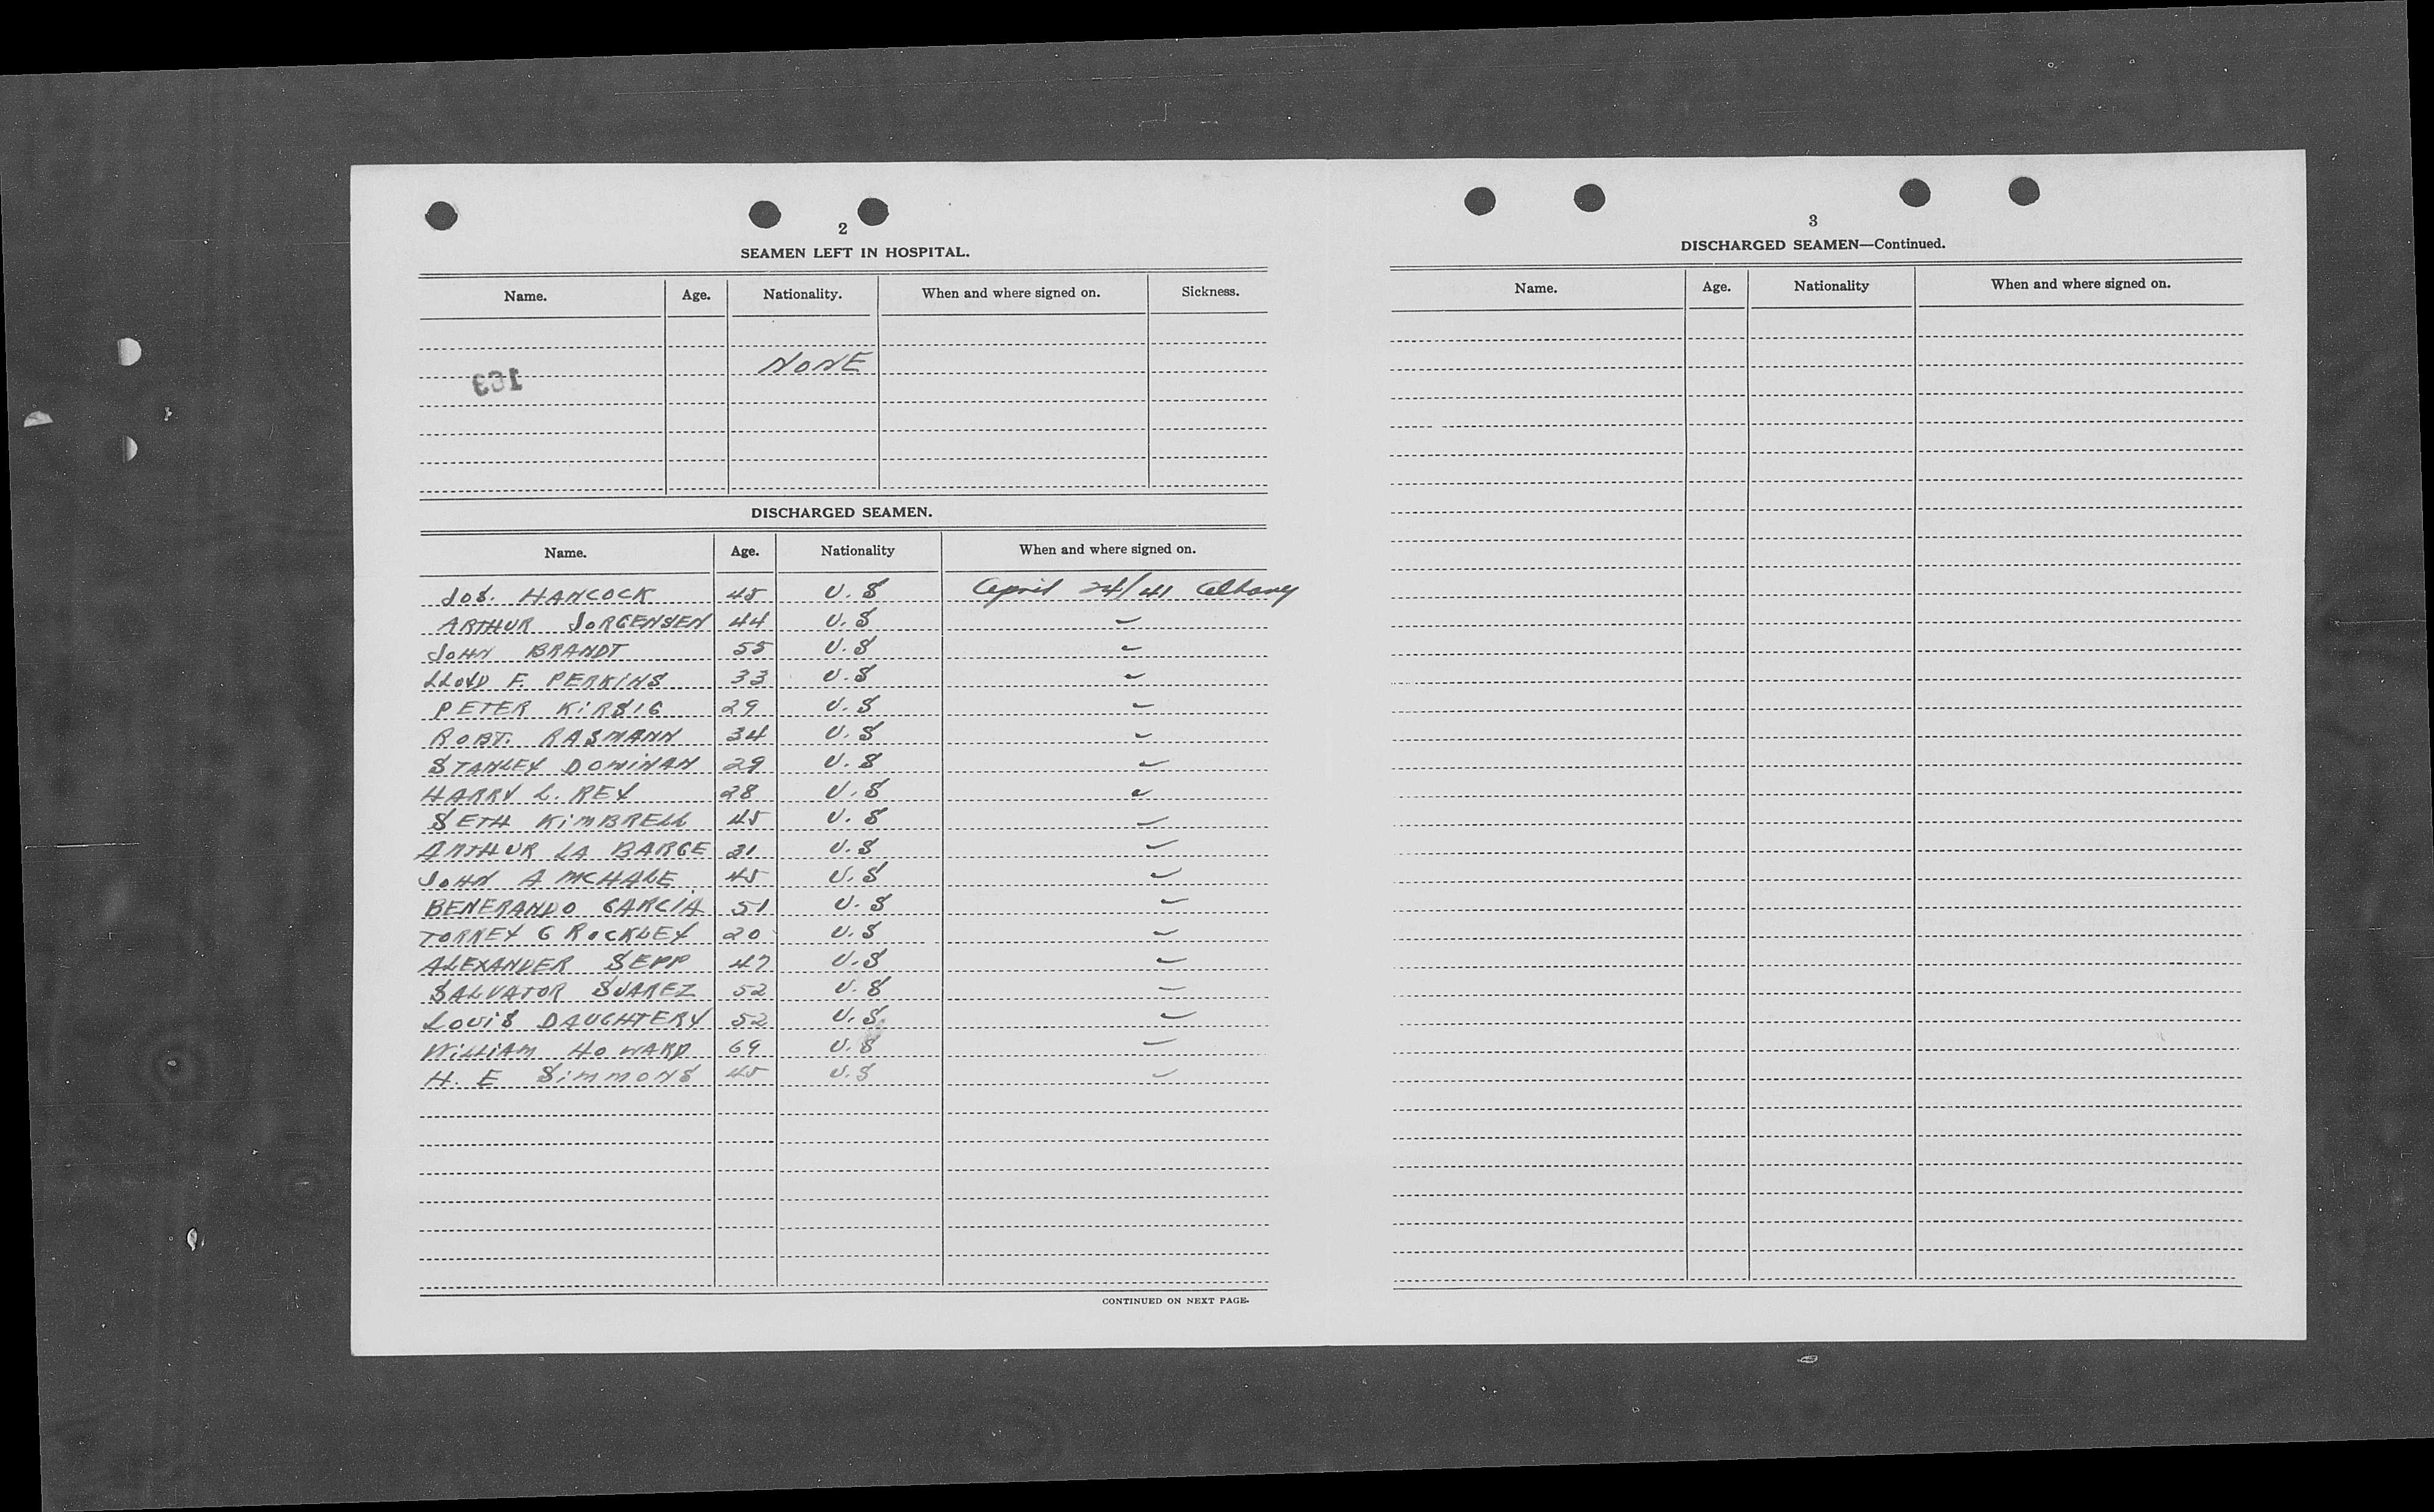 2
SEAMEN LEFT IN HOSPITAL.
Name. Age. Nationality. When and where signed on. Sickness.
NONE
163
DISCHARGED SEAMEN.
Name. Age. Nationality When and where signed on.
JOS. HANCOCK 45 U.S April 24/41 Albany
ARTHUR JORGENSEN 44 U.S
JOHN BRANDT 55 U.S
LLOYD F. PERKINS 33 U.S
PETER KiRSIG 29 U.S
ROBT. RASMANN 34 U.S
STANLEY DOMINAN 29 U.S
HARRY L. REY 28 U.S
SETH KiMBRELL 45 U.S
ARTHUR LA BARGE 31 U.S
JOHN A MCHALE 45 U.S
BENERANDO GARCIA 51 U.S
TORREY G ROCKLEY 20 U.S
ALEXANDER SEPP 47 U.S
SALVATOR SUAREZ 52 U.S
LOUiS DAUGHTERY 52 U.S.
WiLLiAM HOWARD 69 U.S
H. E SiMMONS 45 U.S
CONTINUED ON NEXT PAGE.
3
DISCHARGED SEAMEN—Continued.
Name. Age. Nationality When and where signed on.